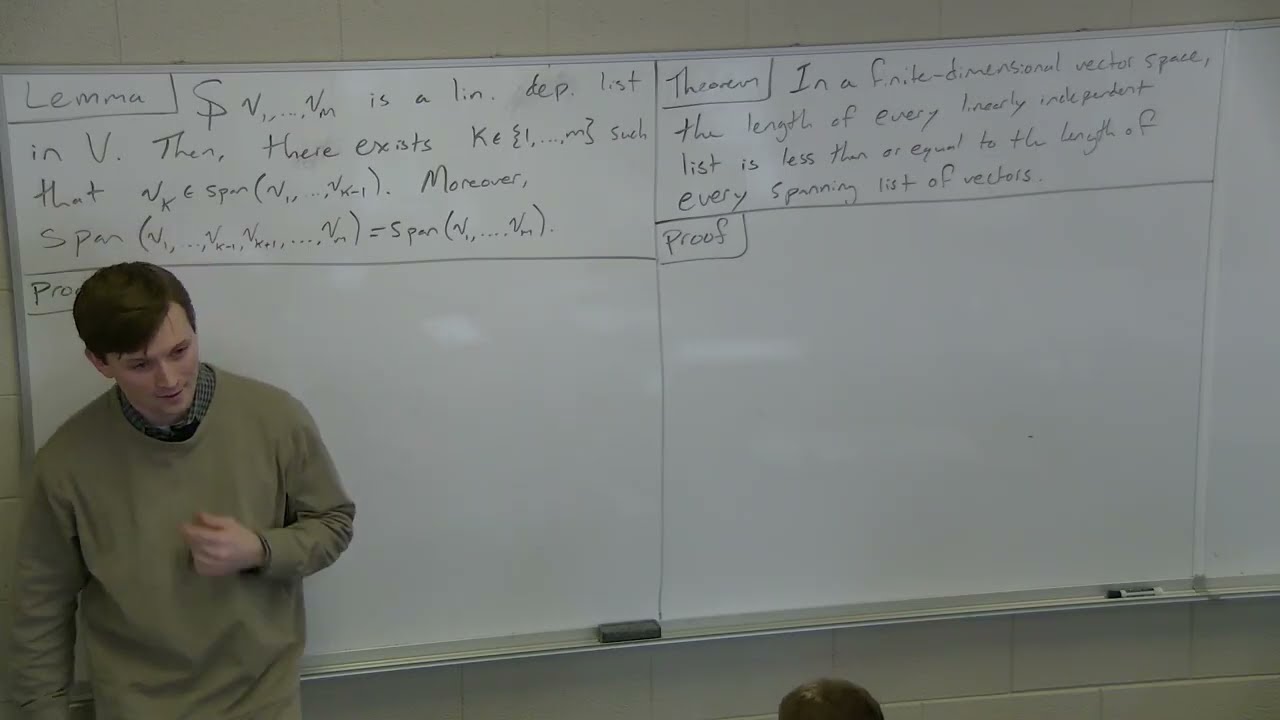 Lemma $ v₁,...,vₘ is a lin. dep. list
in V. Then, there exists K ∈ {1,...,m} such
that vₖ ∈ span(v₁,...,vₖ₋₁). Moreover,
Span (v₁,...,vₖ₋₁,vₖ₊₁,...,vₘ) = Span(v₁,....vₘ).
Theorem In a finite-dimensional vector space,
the length of every linearly independent
list is less than or equal to the length of
every spanning list of vectors.
Proof